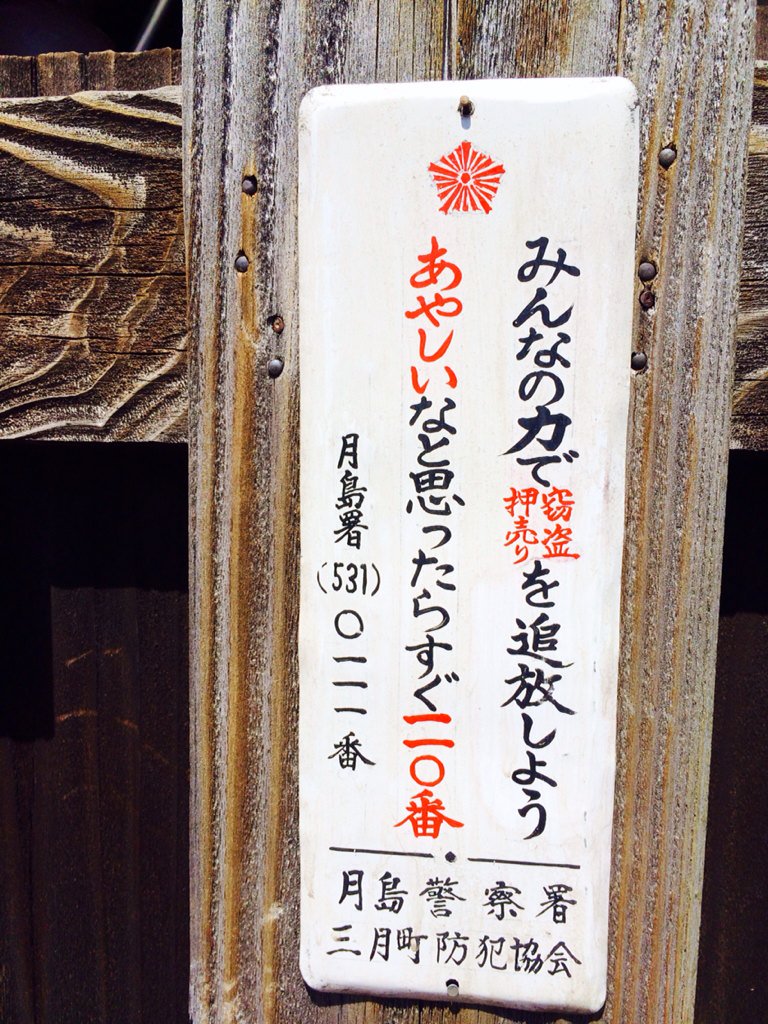 みんなの力で窃盗押売りを追放しよう
あやしいなと思ったらすぐ一一〇番
月島署(531)〇一一一番
月島警察署
三月町防犯協会